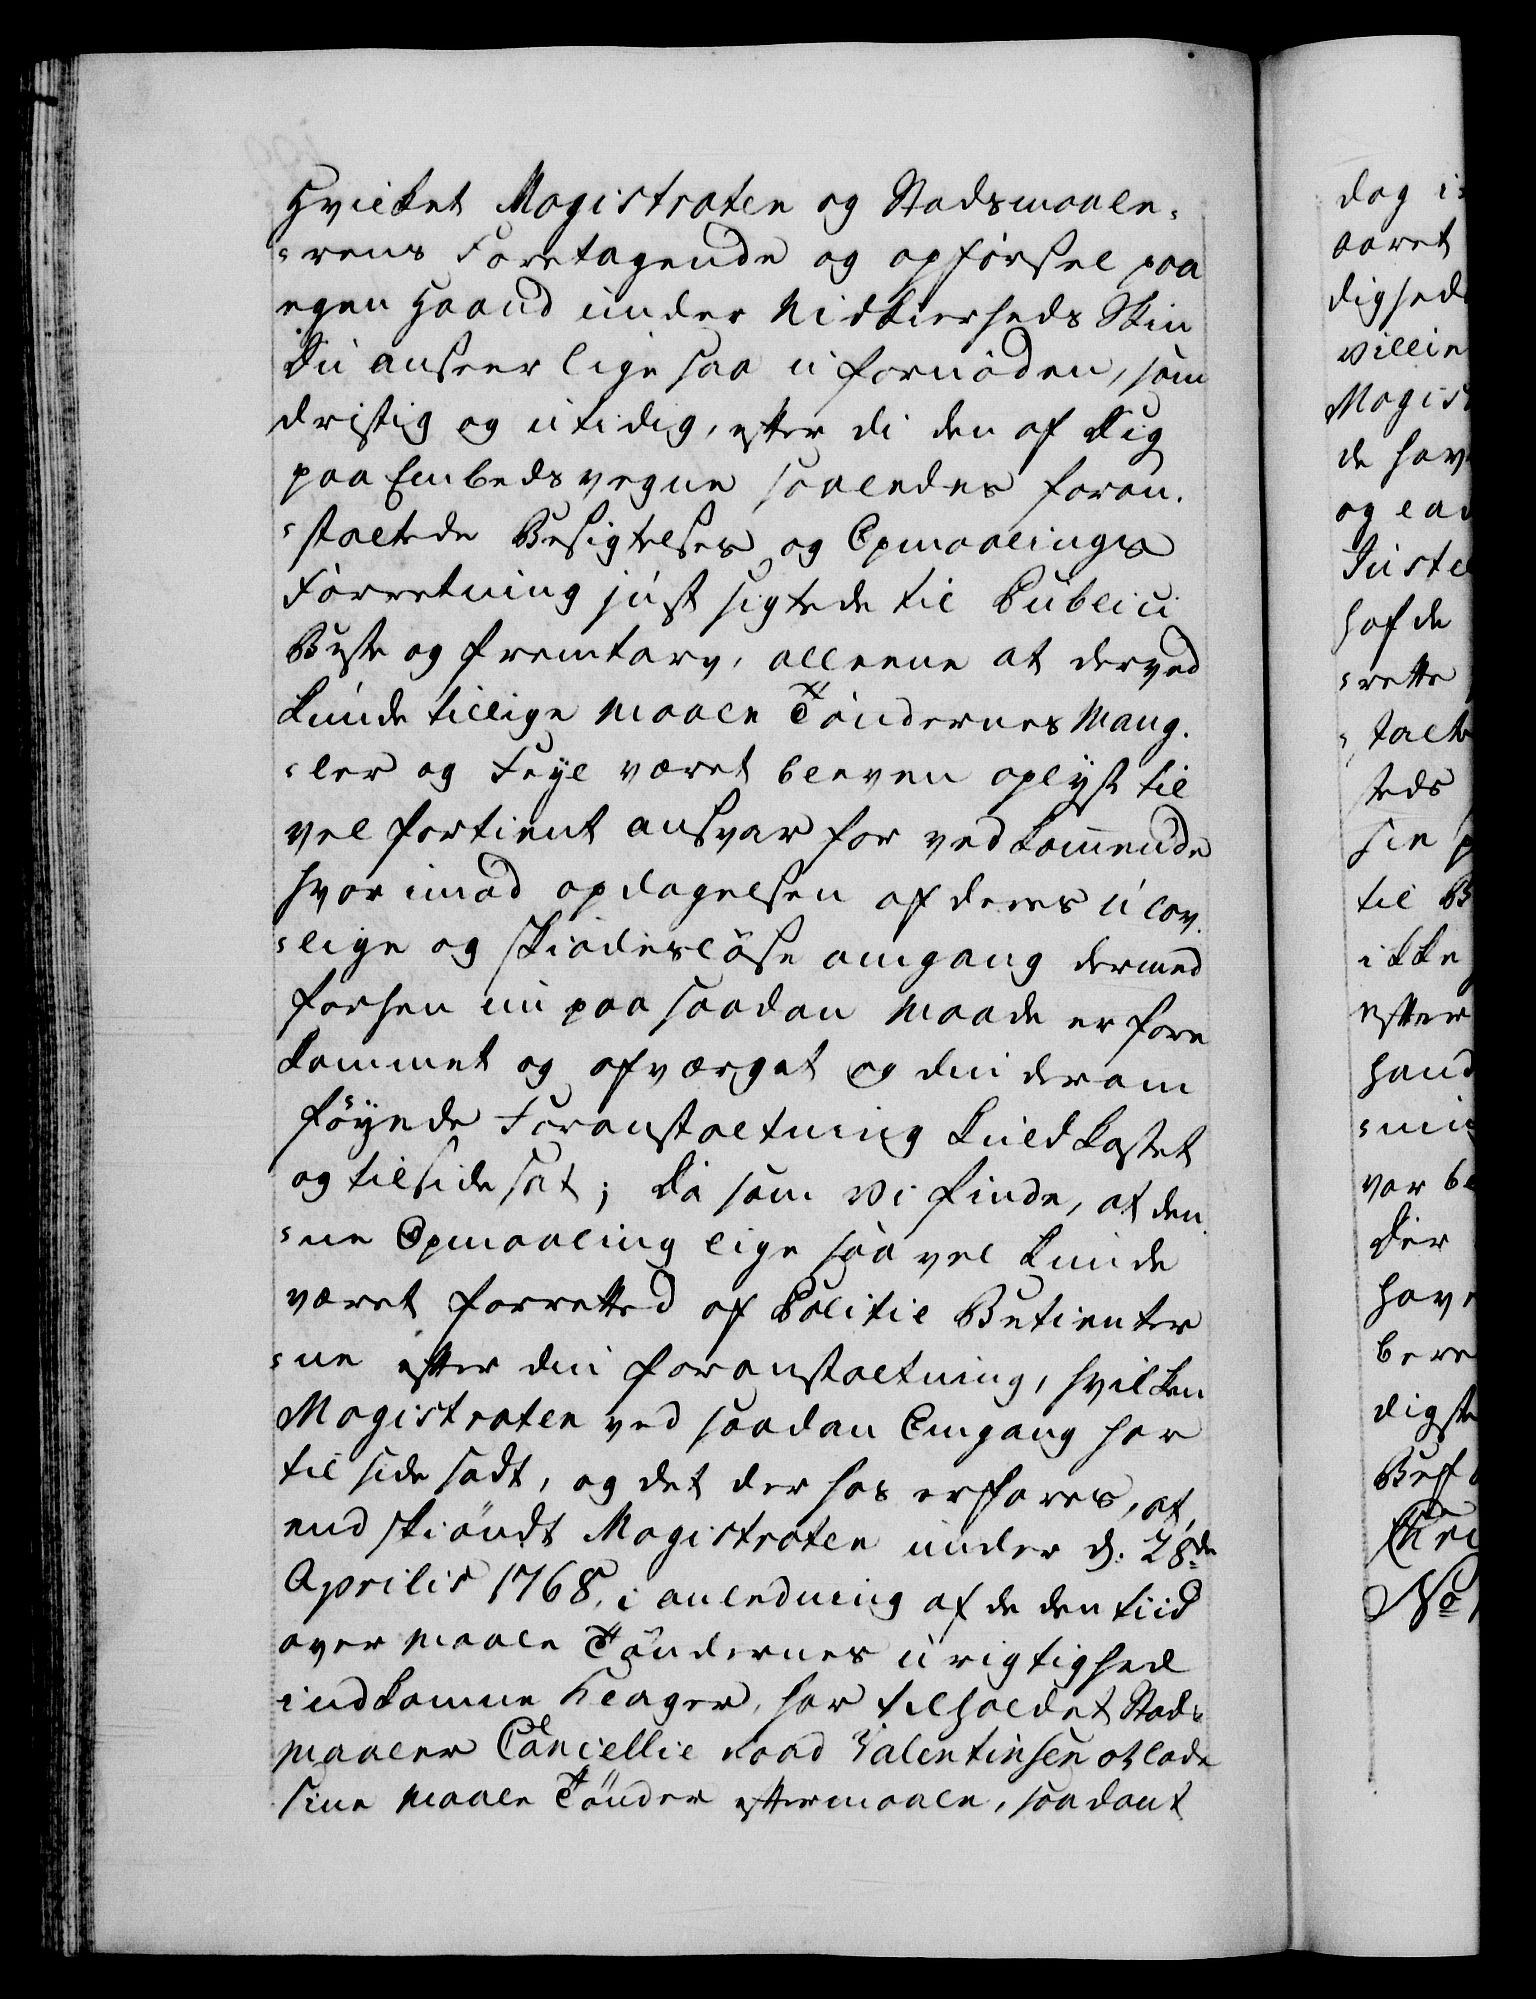 Hvilket Magistraten og Stadsmaale-
-rens Foretagende og opförsel paa
egen Haand under Nidkierheds Skin
Du anseer lige saa ufornöden, som
dristig og utidig, efter di den af Dig
paa Embeds vegne saaledes foran-
-staltede Besigtelses og Opmaalings
Forretning just sigtede til Publici
Beste og fremtarv, alleene at derved
kunde tillige Maale Töndernes Mang-
-ler og Feyl været bleven oplyst til
vel fortient ansvar for vedkommende
hvorimod opdagelsen af deres ulov-
-lige og skiödeslöse omgang dermed
forhen nu paa saadan Maade er fore
kommet og afværget og din derom
föyede Foranstaltning kuldkastet
og tilside sat; Da som vi finde, at den-
-ne Opmaaling lige saa vel kunde
været forretted af Politie Betienter
-ne efter din foranstaltning, hvilken
Magistraten ved saadan Omgang har
til side sadt, og det der hos erfares, at,
endskiöndt Magistraten under d. 28de
Aprilis 1768, i anledning af de den tiid
over Maale Töndernes urigtighed
indkomne Klager, har tilholdet Stads-
Maaler Cancellie raad Valentinsen at lade
sine Maale Tönder eftermaale, saadant
dag i-
aaret
dighed
villie
Magist
de hav
og lad
Juste
hafde
-rette
-talt
steds
sin
til B
ikke
efter
hand
var be
Der
have
digst
No